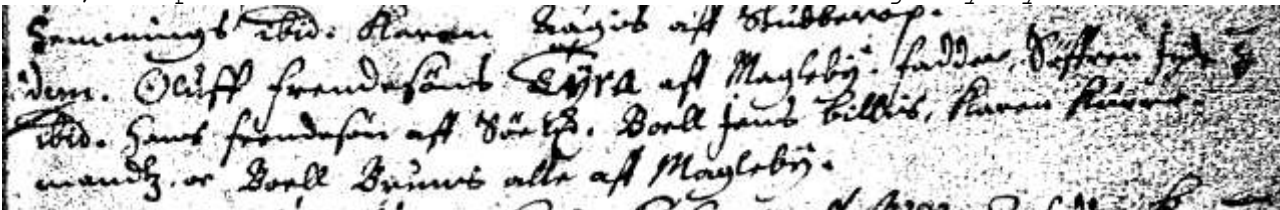 Hemmings ibid. Karen aff Stubberop.
idem. Oluff Frendesøns Tÿra aff Maglebÿ. fadder, Søffren Jyde
ibid. Hans frendesøn aff Boell Jens billis, Karen Kurre-
mandtz. oc Boell Bruuns alle aff Maglebÿ.